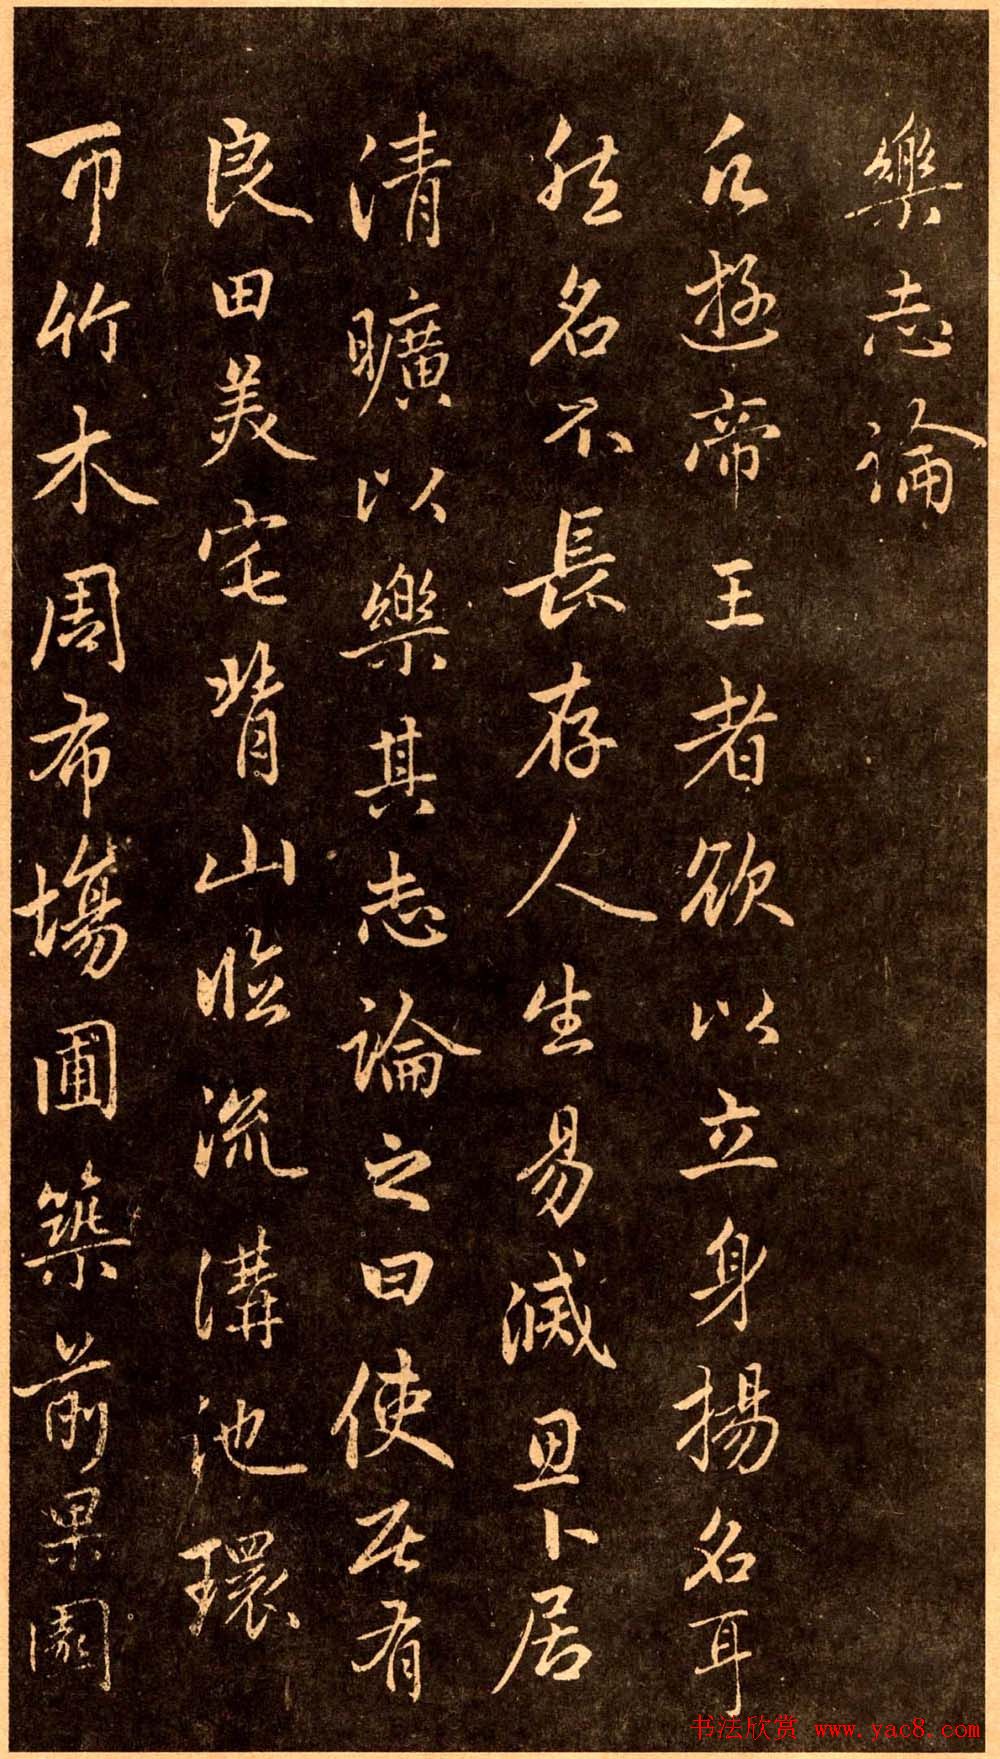 樂志論
凡遊帝王者欲以立身揚名耳
然名不長存人生易滅思卜居
清曠以樂其志論之曰使居有
良田美宅背山臨流溝池環
帀竹木周布場圃築前果園
书法欣赏 www.yac8.com